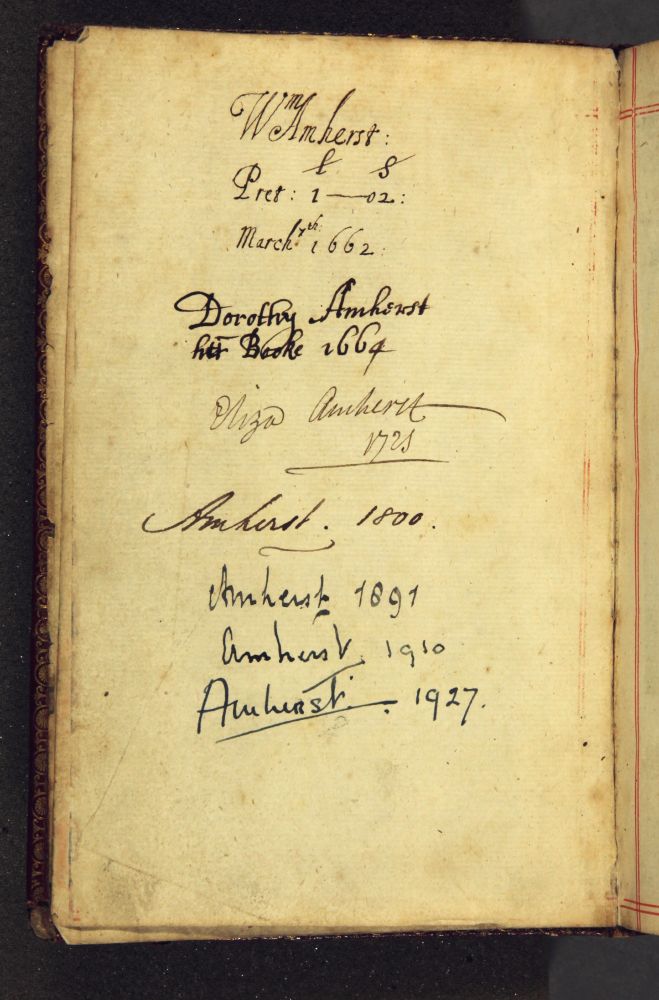 Wm Amherst:
£ S
Pret: 1—02:
March 7th 1662
Dorothy Amherst
her Booke 1664
Eliza Amherst
1721
Amherst. 1800.
Amherst 1891
Amherst. 1910
Amherst. 1927.